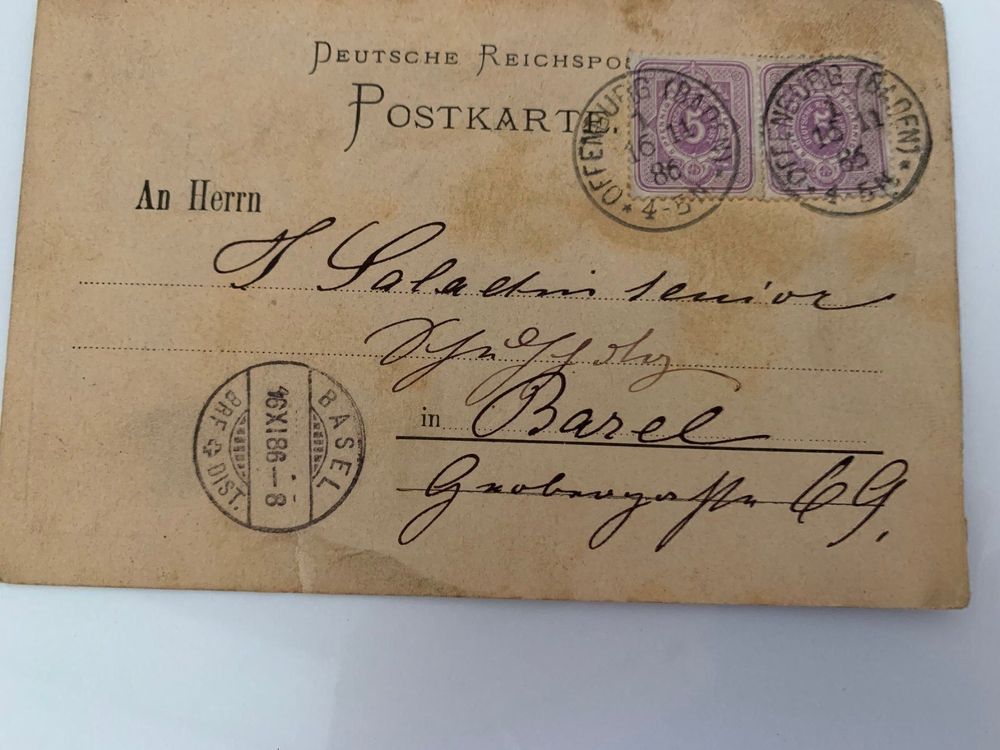 DEUTSCHE REICHSPO
POSTKARTE.
OFFENBURG (BADEN)
15 11
86
4-5N
5
OFFENBURG (BADEN)
15 11
86
4-5N
An Herrn
J Saladin senior
in Basel
69,
BASEL
16 XI 86 - 8
BRF DIST.